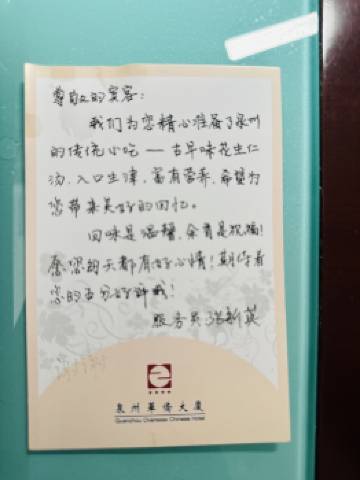 尊敬的宾客：
我们为您精心准备了泉州
的传统小吃——古早味花生仁
汤，入口生津，富有营养，希望为
您带来美好的回忆。
回味是温馨，余香是祝福！
愿您每天都有好心情！期待着
您的百分好评哦！
服务员 张新英
泉州華僑大廈
Quanzhou Overseas Chinese Hotel